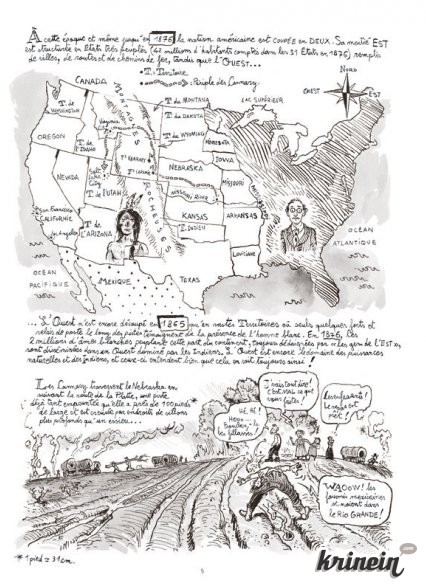 À cette époque et même jusqu'en 1876 la nation américaine est coupée en DEUX. Sa moitié EST
est structurée en Etats très peuplés (42 millions d'habitants comptés dans les 31 Etats en 1876) remplis
de villes, de routes et de chemins de fer, tandis que l'OUEST...
T. = Territoire
= Périple des Lammay
NORD
OUEST
EST
CANADA
LAC SUPÉRIEUR
T. de WASHINGTON
MONTAGNES
T. de MONTANA
T. de DAKOTA
OREGON
T. de IDAHO
Virginia
T. de WYOMING
MINNESOTA
NEVADA
Ft KEARNY
Ft LARAMIE
NEBRASKA
IOWA
SALT LAKE CITY
T. de UTAH
MISSOURI RIVER
MISSOURI
San Francisco
CALIFORNIE
ROCHEUSES
KANSAS
ARKANSAS
Los Angeles
T. de L'ARIZONA
T. INDIEN
OCÉAN
ATLANTIQUE
OCÉAN
PACIFIQUE
MEXIQUE
TEXAS
LOUISIANE
... L'Ouest n'est encore découpé en 1865 qu'en vastes Territoires où seuls quelques forts et
relais de poste le long des pistes témoignent de la présence de l'homme blanc. En 1876, les
2 millions d'âmes blanches peuplant cette part du continent, toujours désignées par « les gens de l'Est »,
sont disséminées dans un Ouest dominé par les Indiens. L'Ouest est encore le domaine des puissances
naturelles et des Indiens, et ceux-ci entendent bien que cela en soit toujours ainsi !
Les Lammay traversent le Nebraska en
suivant la route de la Platte, une piste
déjà tant empruntée qu'elle a près de 100 pieds*
de large et est creusée par endroits de sillons
plus profonds qu'un essieu...
HÉ, HÉ !
les enfants !
WAOOW ! les
fourmis mexicaines
se noient dans
le RIO GRANDE !
* 1 pied = 31 cm.
5
krinein